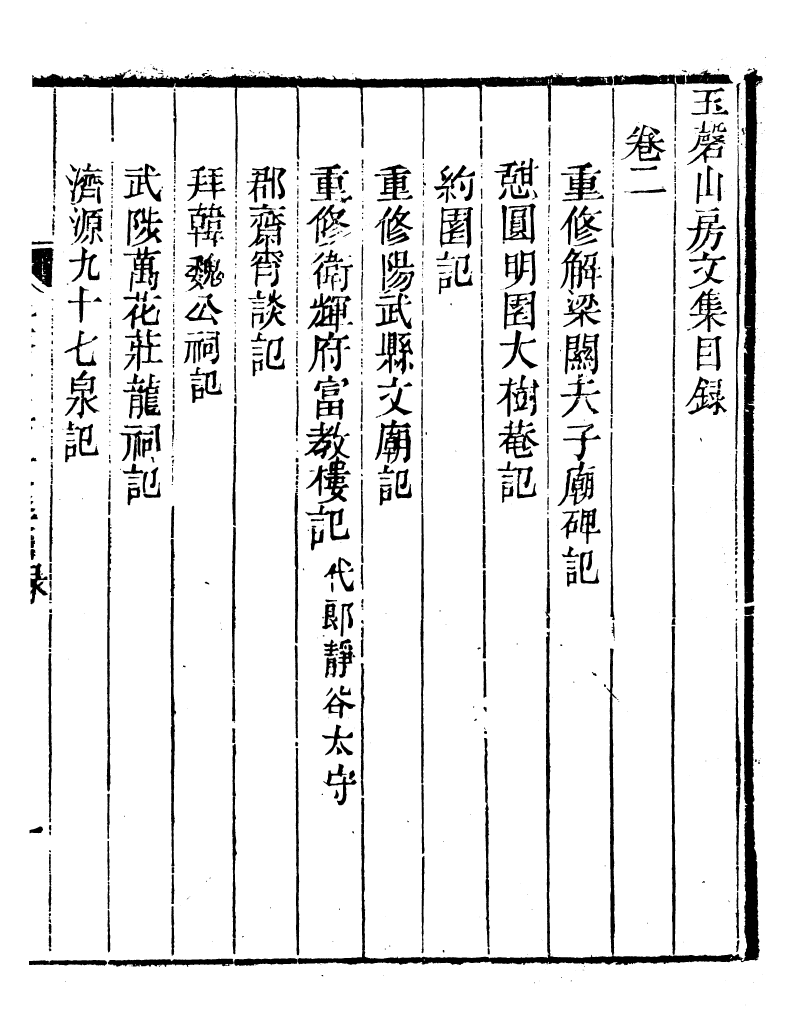 玉磬山房文集目録
卷二
重修解梁關夫子廟碑記
憩圓明園大樹菴記
約園記
重修陽武縣文廟記
重修衛輝府富教樓記 代郎靜谷太守
郡齋宵談記
拜韓魏公祠記
武陟萬花莊龍祠記
濟源九十七泉記